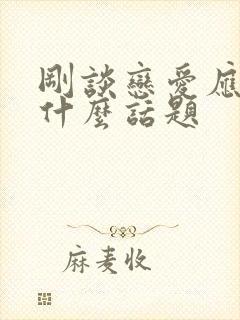 剛談戀愛應
什麼話題
麻麦收